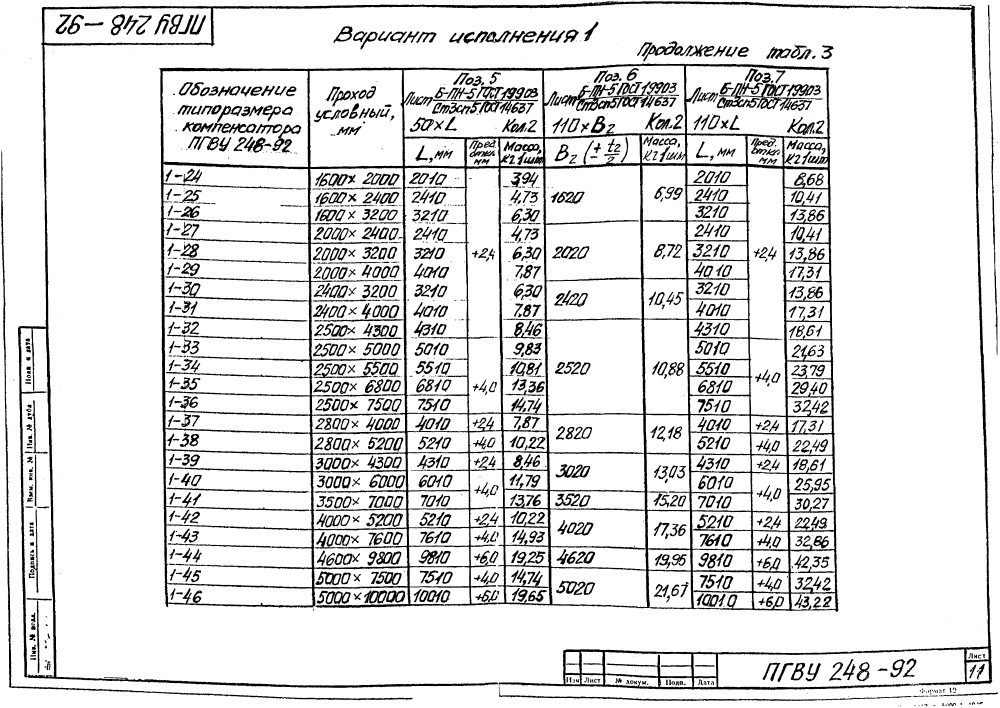 ПГВУ 248-92
Вариант исполнения 1
Продолжение табл. 3
Обозначение типоразмера компенсатора ПГВУ 248-92
Проход условный, мм
Поз. 5
Лист Б-ПН-5 ГОСТ 19903
Ст3сп5 ГОСТ 14637
50×L Кол.2
Поз. 6
Лист Б-ПН-5 ГОСТ 19903
Ст3сп5 ГОСТ 14637
110×B2 Кол.2
Поз. 7
Лист Б-ПН-5 ГОСТ 19903
Ст3сп5 ГОСТ 14637
110×L Кол.2
L, мм Пред. откл. мм Масса, кг 1шт B2 (± t2/2) Масса, кг 1шт L, мм Пред. откл. мм Масса, кг 1шт
1-24 1600×2000 2010 +2,4 3,94 1620 6,99 2010 +2,4 8,68
1-25 1600×2400 2410 4,73 2410 10,41
1-26 1600×3200 3210 6,30 3210 13,86
1-27 2000×2400 2410 4,73 2020 8,72 2410 10,41
1-28 2000×3200 3210 6,30 3210 13,86
1-29 2000×4000 4010 7,87 4010 17,31
1-30 2400×3200 3210 6,30 2420 10,45 3210 13,86
1-31 2400×4000 4010 7.87 4010 17,31
1-32 2500×4300 4310 8,46 2520 10,88 4310 18,61
1-33 2500×5000 5010 +4,0 9,83 5010 +4,0 21,63
1-34 2500×5500 5510 10,81 5510 23,79
1-35 2500×6800 6810 13,36 6810 29,40
1-36 2500×7500 7510 14,74 7510 32,42
1-37 2800×4000 4010 +2,4 7,87 2820 12,18 4010 +2,4 17,31
1-38 2800×5200 5210 +4,0 10,22 5210 +4,0 22,49
1-39 3000×4300 4310 +2,4 8,46 3020 13,03 4310 +2,4 18,61
1-40 3000×6000 6010 +4,0 11,79 6010 +4,0 25,95
1-41 3500×7000 7010 13,76 3520 15,20 7010 30,27
1-42 4000×5200 5210 +2,4 10,22 4020 17,36 5210 +2,4 22,49
1-43 4000×7600 7610 +4,0 14,93 7610 +4,0 32,86
1-44 4600×9800 9810 +6,0 19,25 4620 19,95 9810 +6,0 42,35
1-45 5000×7500 7510 +4,0 14,74 5020 21,67 7510 +4,0 32,42
1-46 5000×10000 10010 +6,0 19,65 10010 +6,0 43,22
Подп. и дата
Инв. № дубл.
Взам. инв. №
Подпись и дата
Инв. № подл.
Изм Лист № докум. Подп. Дата
ПГВУ 248-92
Лист
11
Формат 12